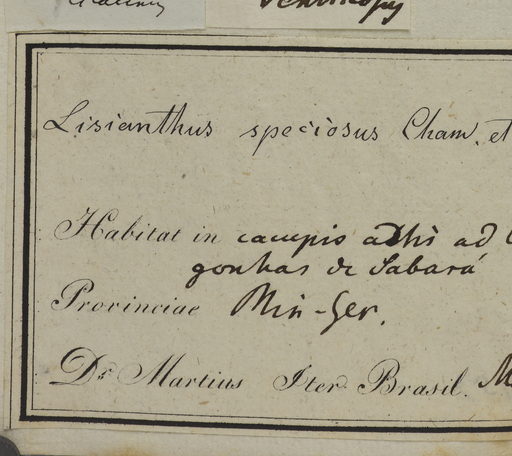 Lisianthus speciosus Cham. et
Habitat in campis altis ad
gonhas de Sabará
Provinciae Min-Ger.
Dr. Martius Iter Brasil. M